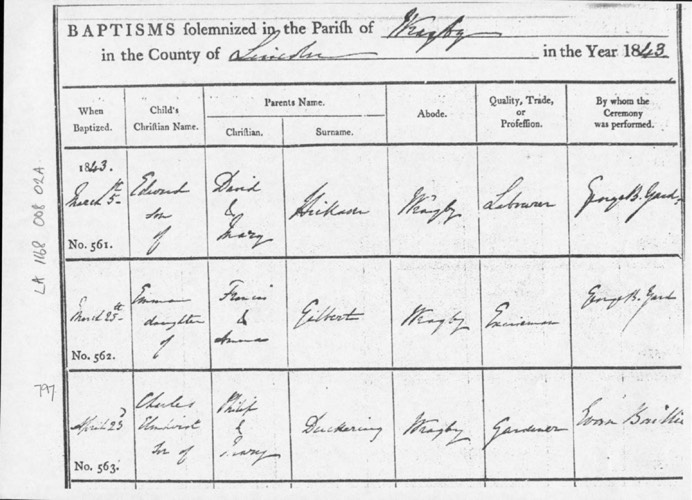 BAPTISMS solemnized in the Parish of Wragby
in the County of Lincoln in the Year 1843
When Baptized.
Child's Christian Name.
Parents Name.
Christian.
Surname.
Abode.
Quality, Trade, or Profession.
By whom the Ceremony was performed.
1843.
March 5th
No. 561.
Edward
son
of
David
&
Mary
Wragby
Labourer
George B. Gard
March 25th
No. 562.
Emma
daughter
of
Francis
&
Gilbert
Wragby
Exciseman
George B. Gard
April 23d
No. 563.
Charles
son of
Philip
&
Duckering
Wragby
Gardener
LA 1168 008 02A
797